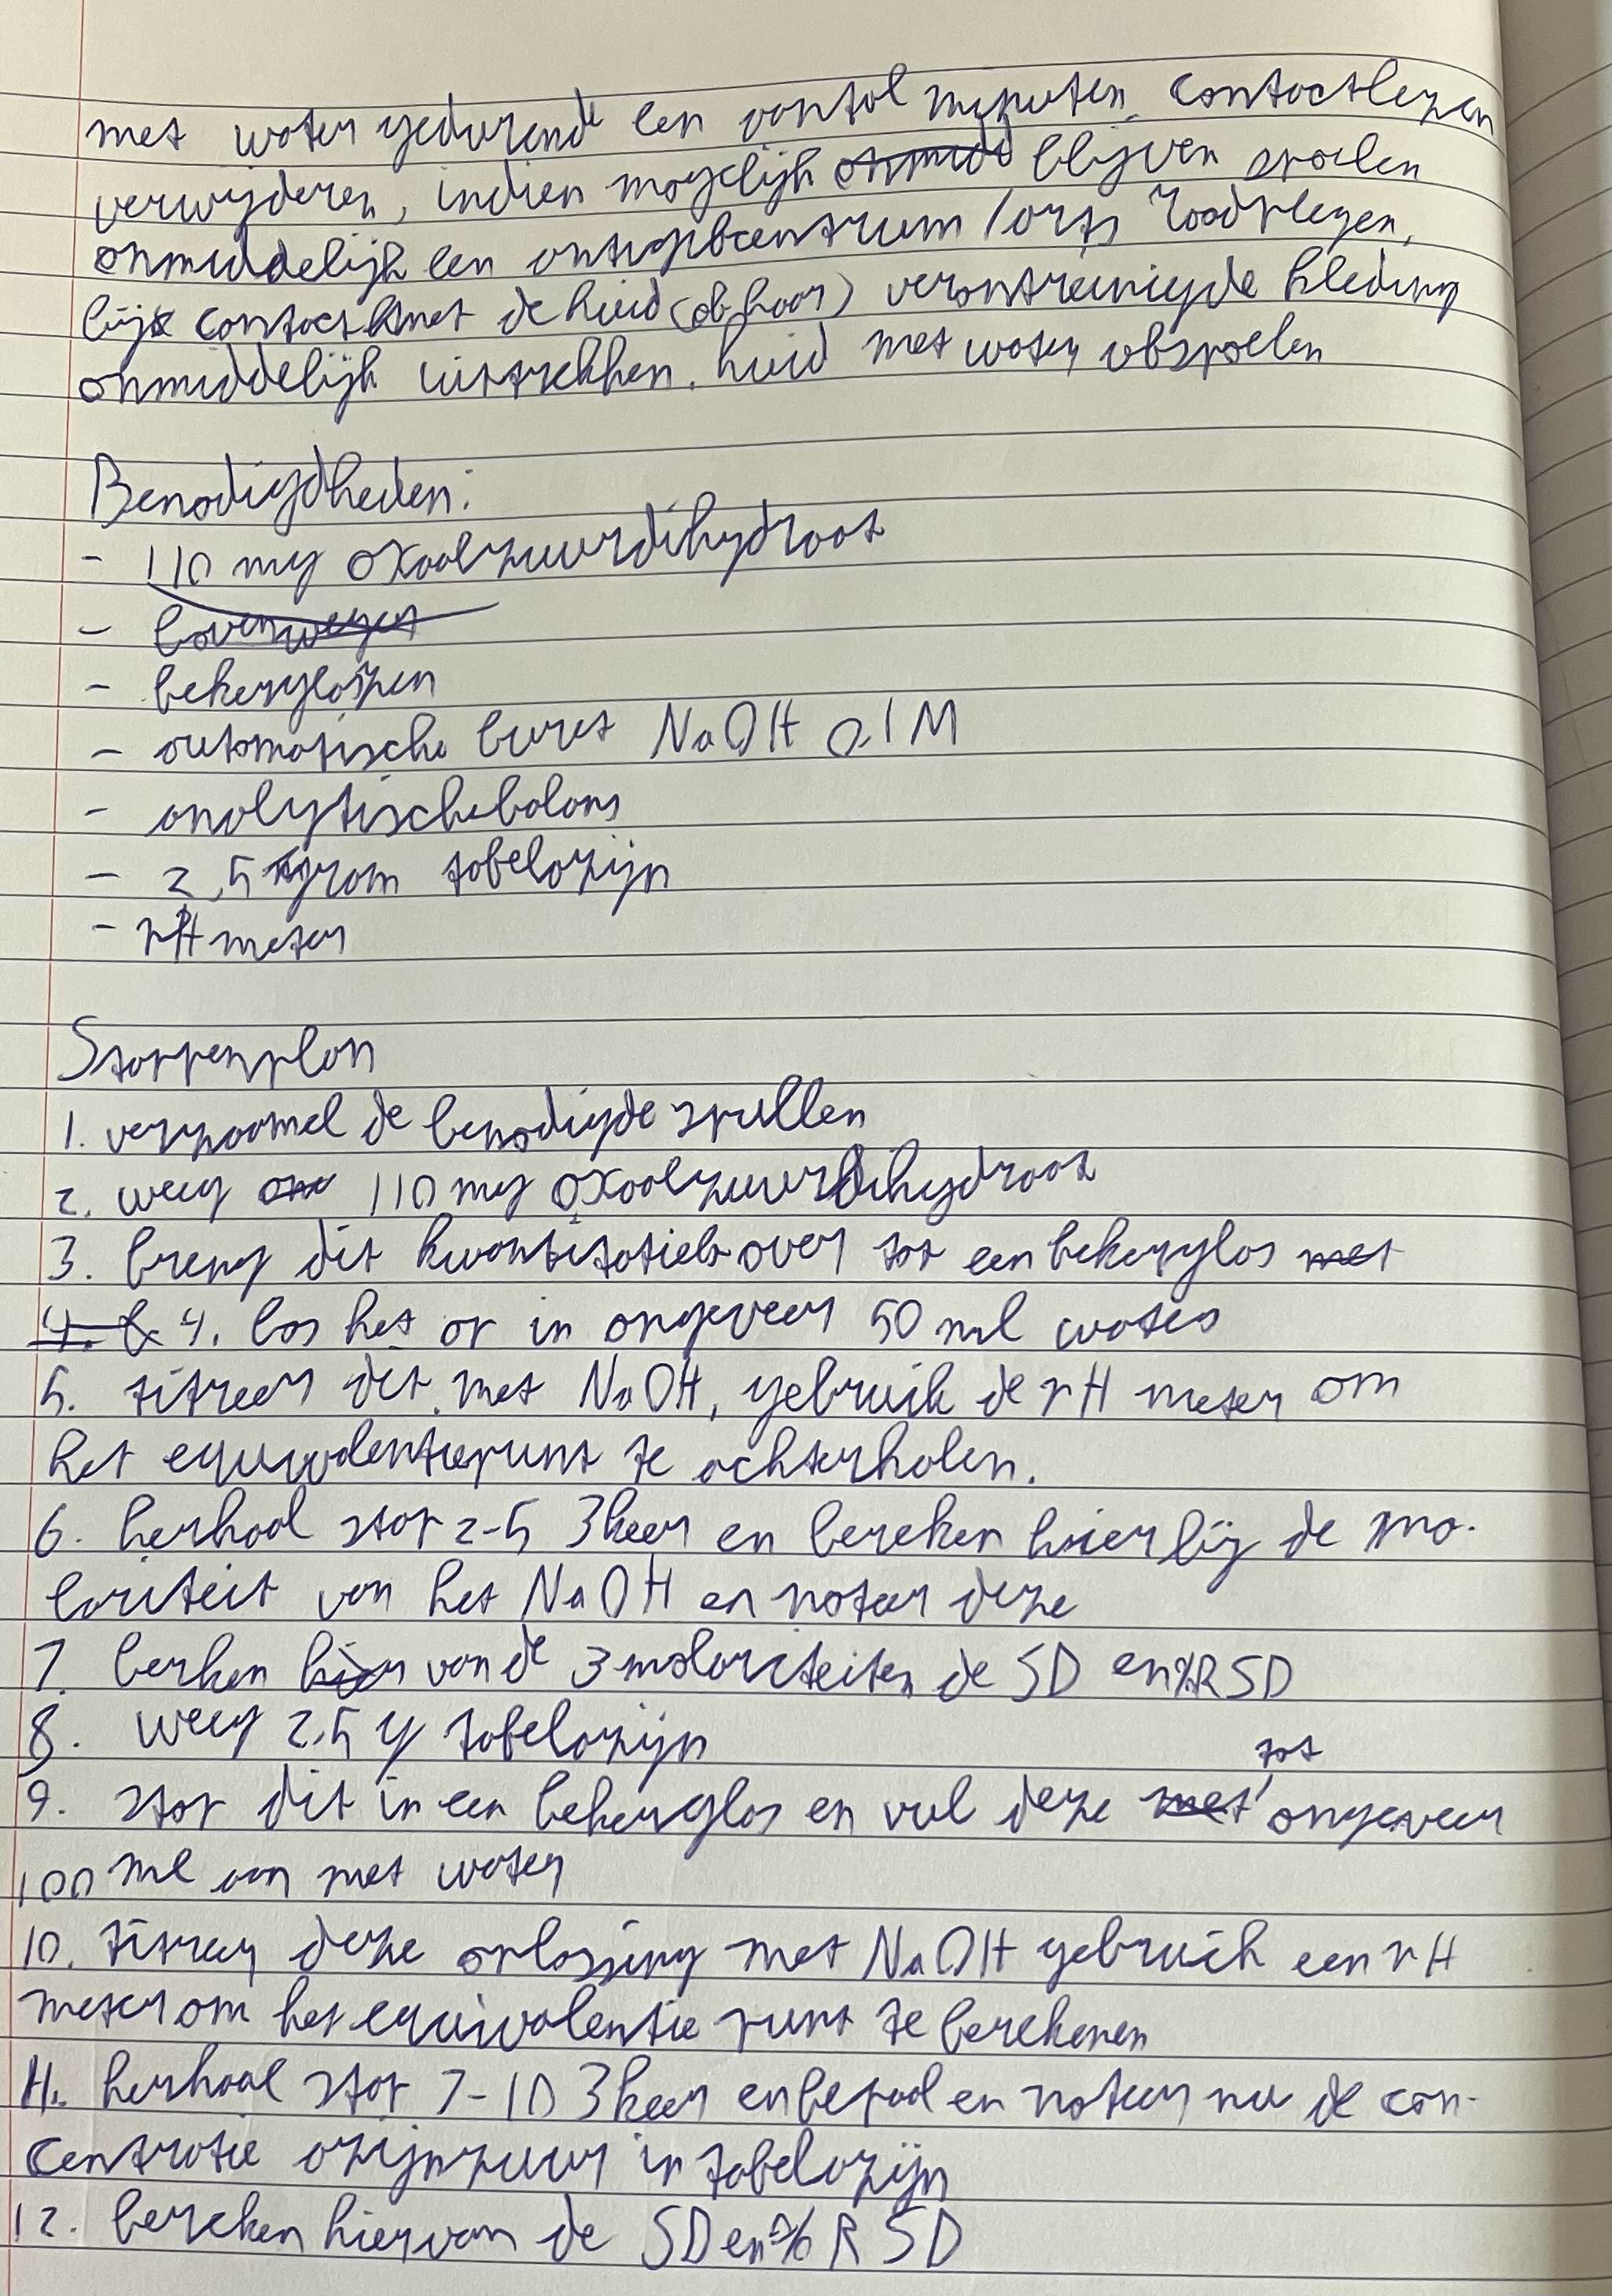 met water gedurende een aantal minuten, contactlenzen
verwijderen, indien mogelijk blijven spoelen
onmiddelijk een antigifcentrum / arts raadplegen,
bij contact met de huid (of haar) verontreinigde kleding
onmiddelijk uittrekken. huid met water afspoelen
Benodigdheden:
- 110 mg oxaalzuurdihydraat
- bovenweger
- bekerglazen
- automatische buret NaOH 0,1 M
- analytische balans
- 2,5 gram tafelazijn
- pH meter
Stappenplan
1. verzaamel de benodigde spullen
2. weeg 110 mg oxaalzuurdihydraat
3. breng dit kwantitatief over tot een bekerglas met
4. 4. los het op in ongeveer 50 ml water
5. titreer dit met NaOH, gebruik de pH meter om
het equivalentiepunt te achterhalen.
6. herhaal stap 2-5 3 keer en bereken hierbij de mo-
lariteit van het NaOH en noteer deze
7. berken hier van de 3 molariteiten de SD en %RSD
8. weeg 2,5 g tafelazijn
tot
9. stop dit in een bekerglas en vul deze met ongeveer
100 ml aan met water
10. titreer deze oplossing met NaOH gebruik een pH
meter om het equivalentie punt te berekenen
11. herhaal stap 7-10 3 keer en bepaal en noteer nu de con-
centratie azijnzuur in tafelazijn
12. bereken hiervan de SD en % RSD